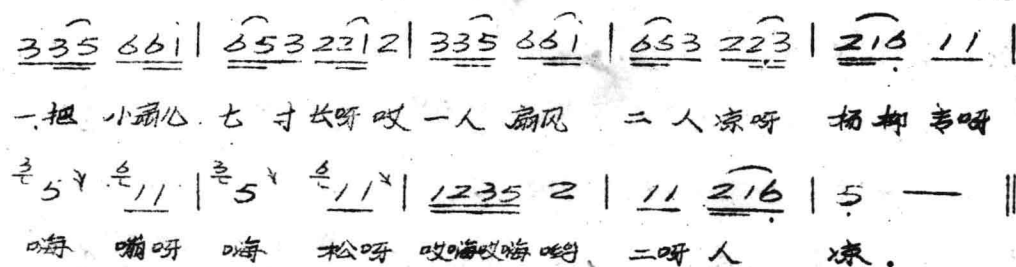 335 661 | 653 2212 | 335 661 | 653 223 | 216 11 |
一把 小扇儿 七寸长呀哎 一人 扇风 二人凉呀 杨柳青呀
3 5 6 11 | 3 5 6 11 | 1235 2 | 11 216 | 5 — ‖
嗨 嘣呀 嗨 松呀 哎嗨哎嗨哟 二呀人 凉.